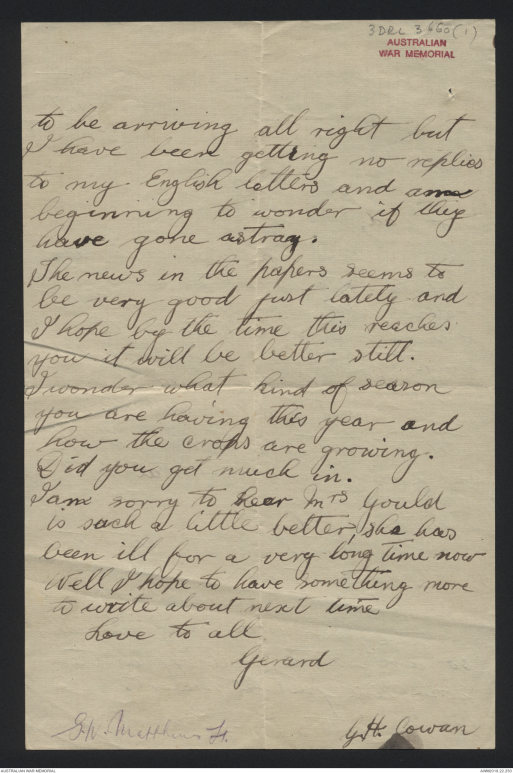 3DRL 3660(1)
AUSTRALIAN
WAR MEMORIAL
to be arriving all right but
I have been getting no replies
to my English letters and am
beginning to wonder if they
have gone astray.
The news in the papers seems to
be very good just lately and
I hope by the time this reaches
you it will be better still.
I wonder what kind of season
you are having this year and
how the crops are growing.
Did you get much in.
I am sorry to hear Mrs Gould
is such a little better, she has
been ill for a very long time now
Well I hope to have something more
to write about next time
Love to all
Gerard
G.W. Matthews Lt.
G.H. Cowan
AUSTRALIAN WAR MEMORIAL